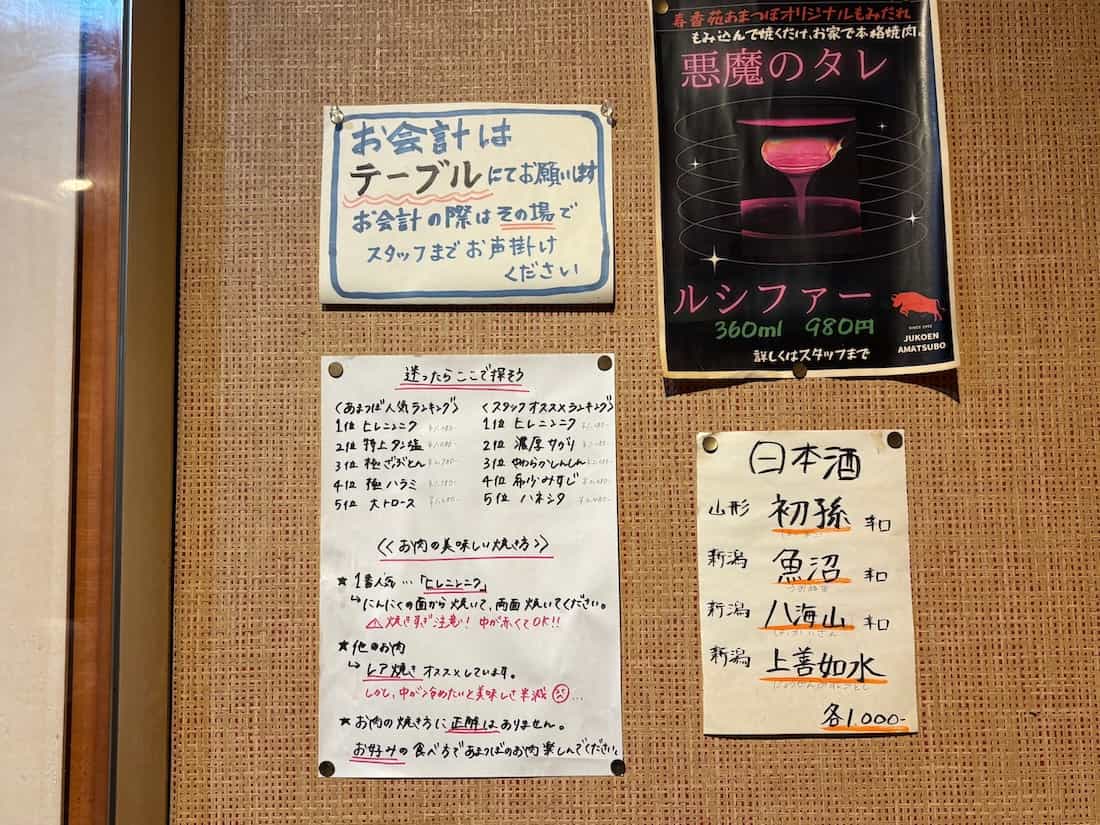 お会計は
テーブルにてお願いします
お会計の際はその場で
スタッフまでお声掛け
ください
寿香苑あまつぼオリジナルもみだれ
もみ込んで焼くだけ、お家で本格焼肉。
悪魔のタレ
ルシファー
360ml 980円
詳しくはスタッフまで
SINCE
JUKOEN
AMATSUBO
迷ったらここで探そう
〈あまつぼ人気ランキング〉
1位 ヒレニンニク
2位 特上タン塩
3位 極ざぶとん
4位 極ハラミ
5位 大トロース
〈スタッフオススメランキング〉
1位 ヒレニンニク
2位 濃厚サガリ
3位 やわらかしんしん
4位 希少みすじ
5位 ハネシタ
〈〈お肉の美味しい焼き方〉〉
★ 1番人気…「ヒレニンニク」
↳にんにくの面から焼いて、両面焼いてください。
⚠焼きすぎ注意! 中が赤くてOK!!
★ 他のお肉
↳レア焼きオススメしています。
しかし、中が冷めたいと美味しさ半減…
★ お肉の焼き方に正解はありません。
お好みの食べ方であまつぼのお肉楽しんでください。
日本酒
山形 初孫 辛口
新潟 魚沼 辛口
新潟 八海山 辛口
新潟 上善如水
各1,000-